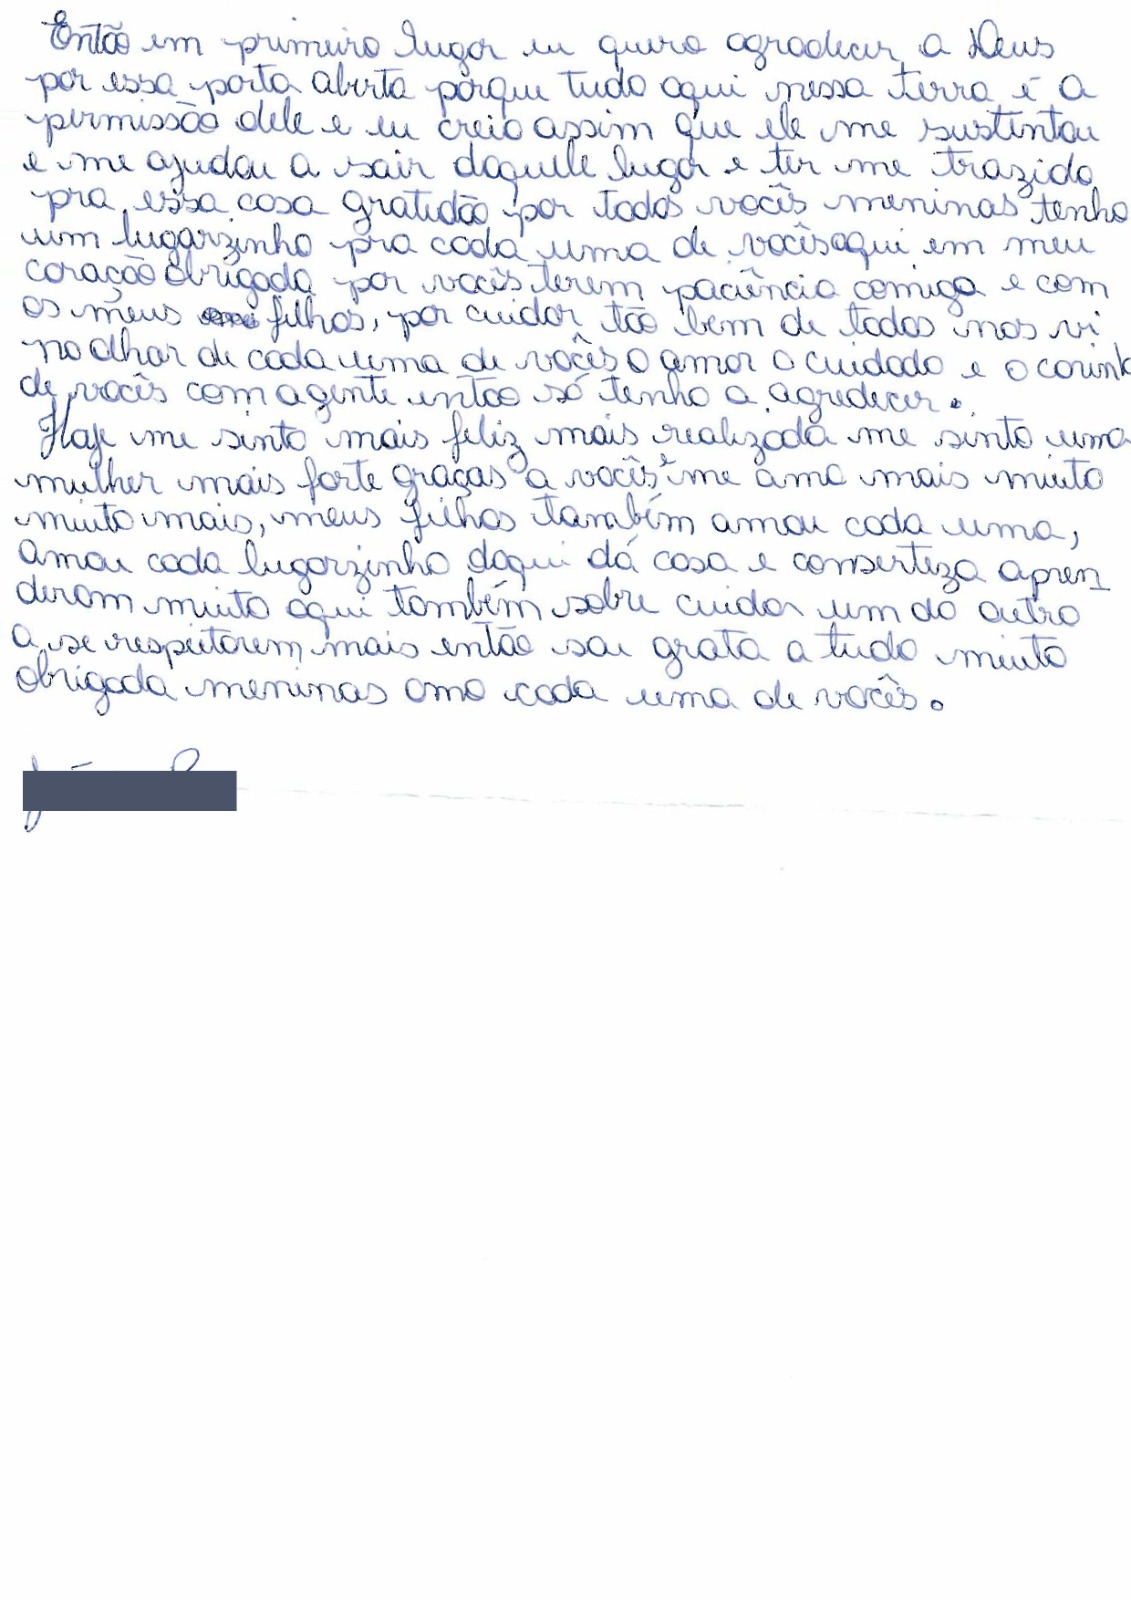 Então em primeiro lugar eu quero agradecer a Deus
por essa porta aberta porque tudo aqui nessa terra é a
permissão dele e eu creio assim que ele me sustentou
e me ajudou a sair daquele lugar e ter me trazido
pra essa casa gratidão por todos vocês meninas tenho
um lugarzinho pra cada uma de vocês aqui em meu
coração obrigada por vocês terem paciência comigo e com
os meus filhos, por cuidar tão bem de todos nos vi
no olhar de cada uma de vocês o amor o cuidado e o carinh
de vocês com agente então só tenho a agredecer.
Hoje me sinto mais feliz mais realizada me sinto uma
mulher mais forte graças a vocês e me amo mais muito
muito mais, meus filhos também amou cada uma,
amou cada lugarzinho daqui dá casa e conserteza apren
deram muito aqui também sobre cuidar um do outro
a se respeitarem mais então sou grata a tudo muito
obrigada meninas amo cada uma de vocês.